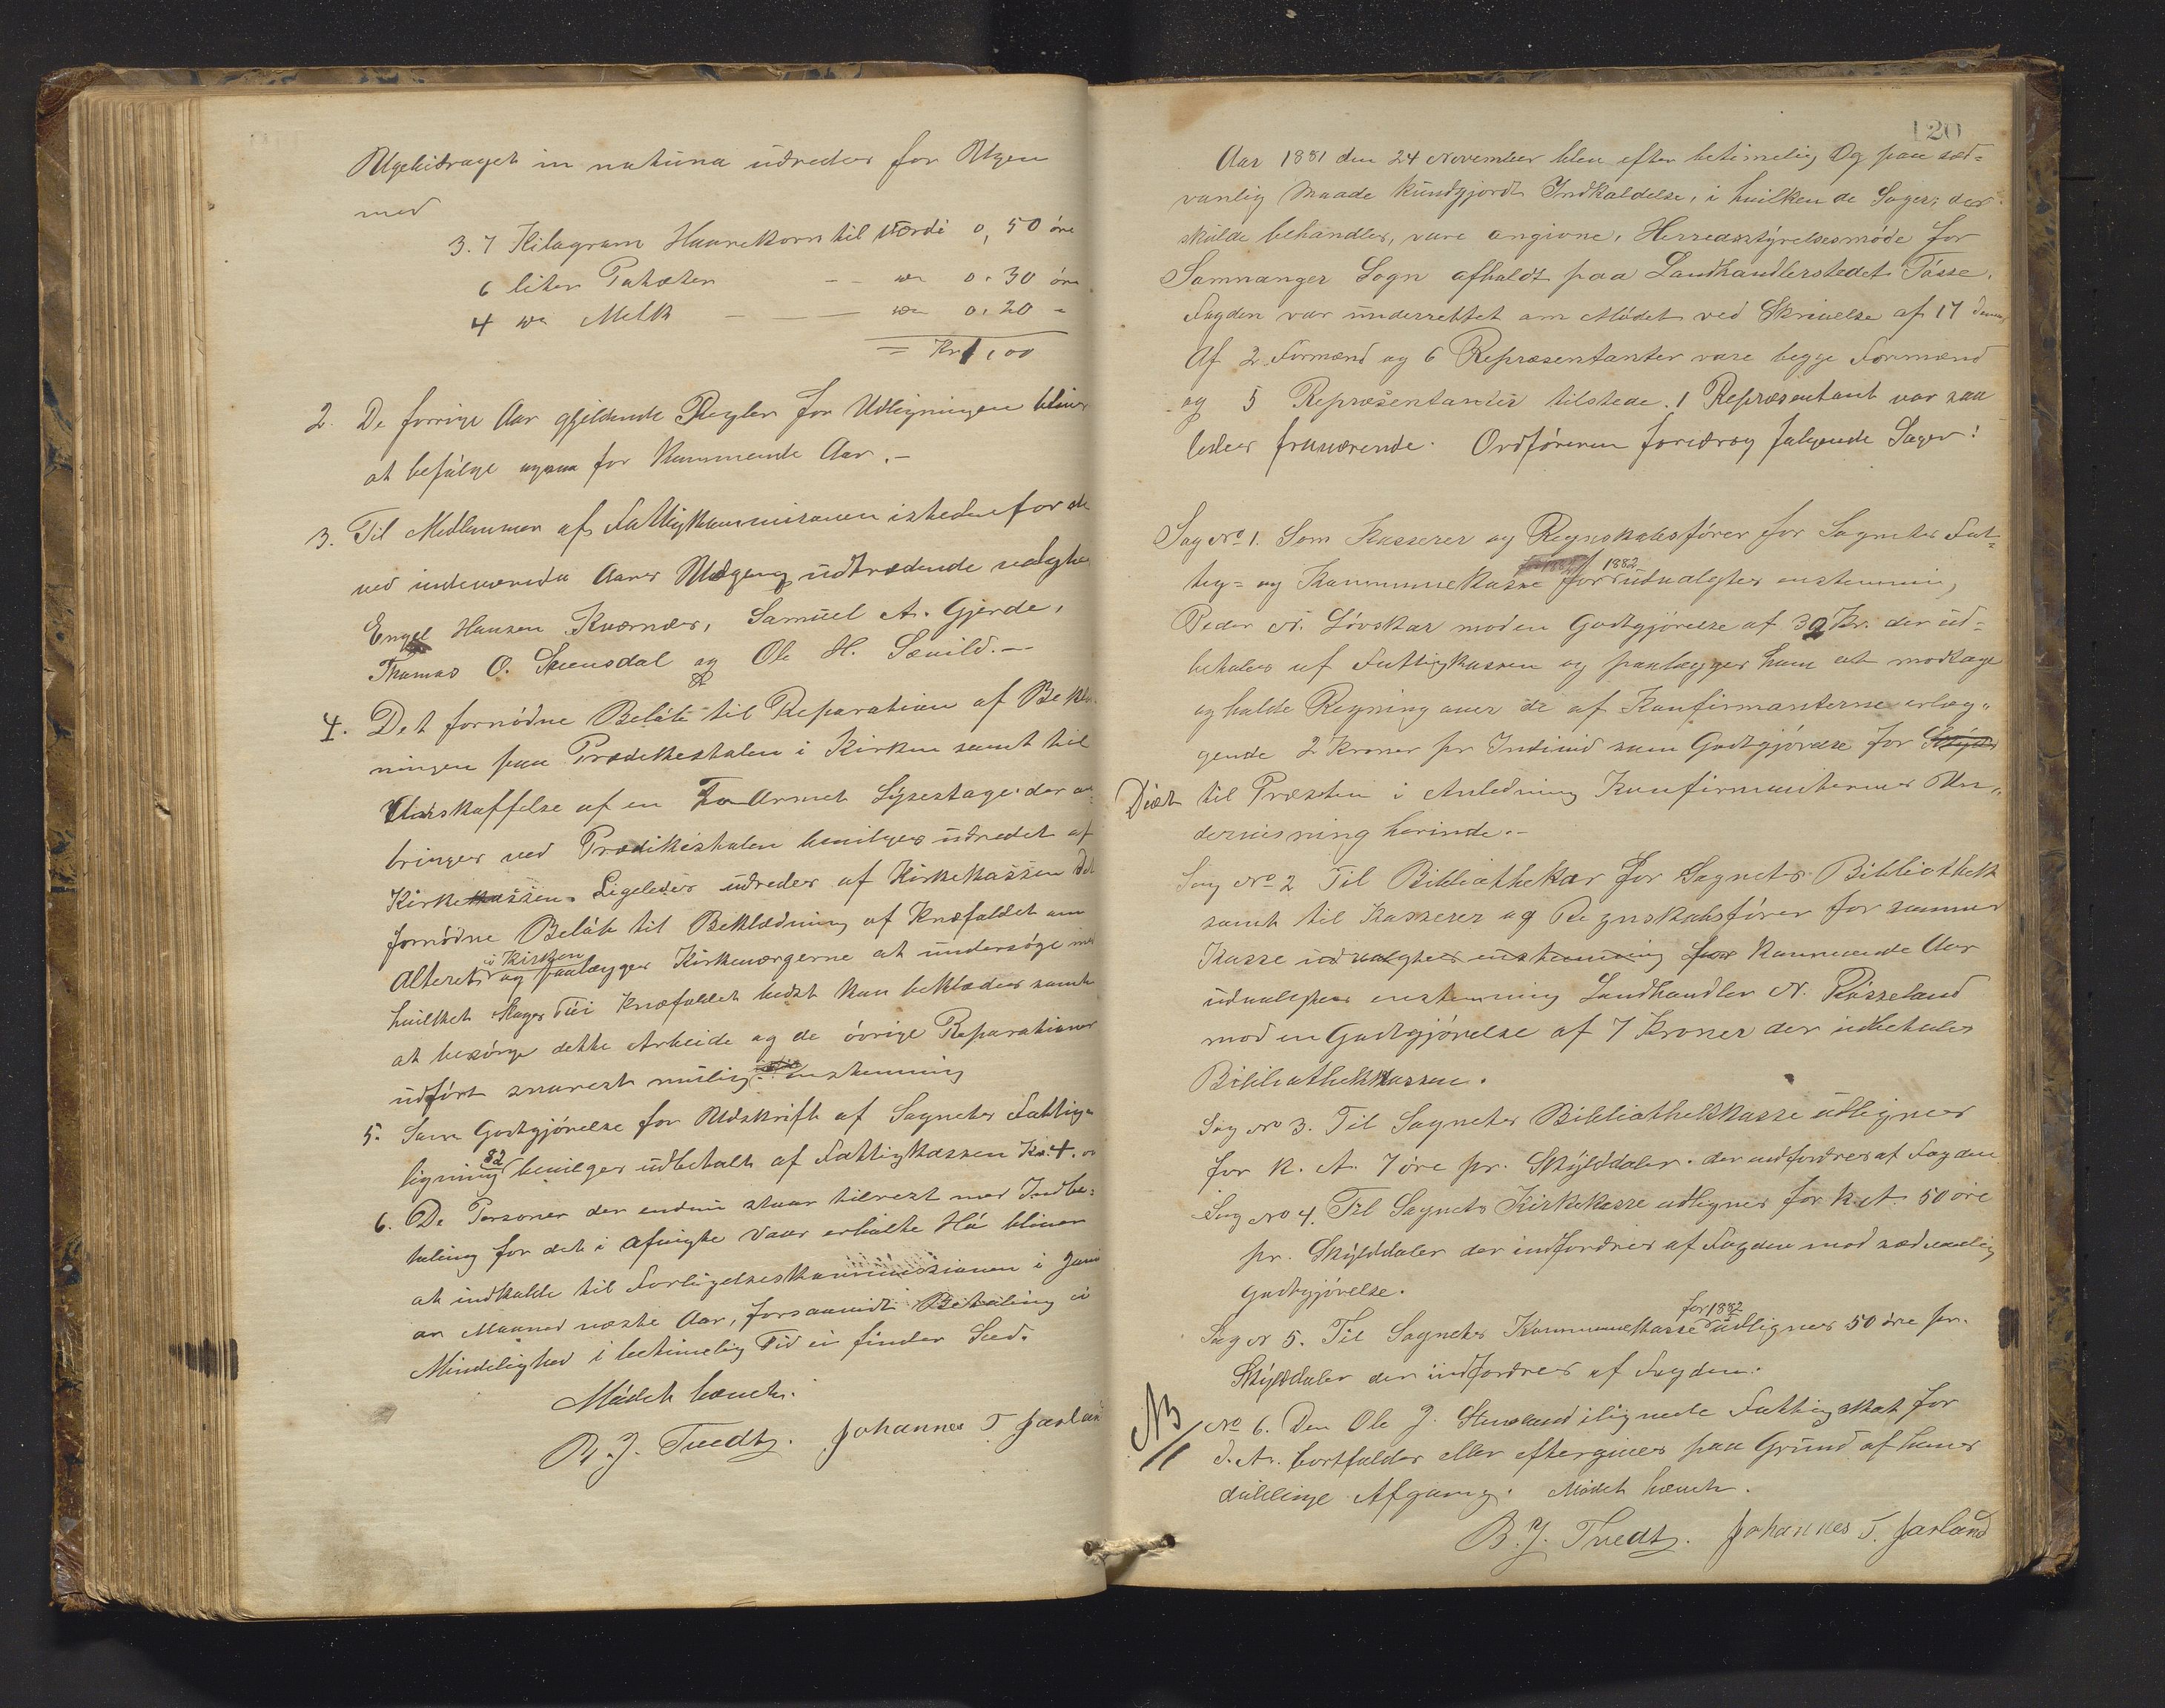 Ugebidraget in natura udredes for Ugen
med
3.7 Kilogram Havrekorn til Værdi 0,50 öre
6 liter Poteter - - do 0.30 öre
4 do Melk - - - do 0.20 -
= Kr 1,00
2. De forrige Aar gjeldende Regler for Udligningen bliver
at befölge ogsaa for Kommende Aar. -
3. Til Medlemmer af Fattigkommisionen istedenfor de
ved indeværende Aares Udgang udtrædende valgtes
Engel Hansen Kværnes, Samuel A. Gjerde,
Thomas O. Skeusdal og Ole H. Sævild. -
4. Det fornödne Belöb til Reparation af Beklæ-
ningen paa Prædikestolen i Kirken samt til
Anskaffelse af en To Armet Lysestage der an-
bringes ved Prædikestolen bevilges udredet af
Kirkekassen. Ligeledes udredes af Kirkekassen det
fornödne Belöb til Beklædning af Knæfaldet om
Alteret i Kirken og paalægges Kirkeværgerne at undersöge med
hvilket Slags Töi Knæfaldet bedst kan beklædes samt
at besörge dette Arbeide og de övrige Reparationer
udfört snarest mulig. enstemmig
5. Som Godtgjörelse for Udskrift af Sognets Fattig-
ligning 82 bevilges udbetalt af Fattigkassen Kr. 4.00
6. De Personer der endnu staar tilrest med Indbe-
taling for det i afvigte Vaar erholte Hö bliver
at indkalde til Forligelseskommissionen i Janu
ar Maaned næste Aar, forsaavidt Betaling i
Mindelighed i betimelig Tid ei finder Sted.
Mödet hævet.
B. J. Tvedt. Johannes T Jarland
120
Aar 1881 den 24 November blev efter betimelig Og paa sæd-
vanlig Maade kundgjordt Indkaldelse, i hvilken de Sager, der
skulde behandles, vare angivne, Herredsstyrelsesmöde for
Samnanger Sogn afholdt paa Landhandlerstedet Tösse.
Fogden var underrettet om Mödet ved Skrivelse af 17 dennes
Af 2 Formænd og 6 Repræsentanter vare begge Formænd
og 5 Repræsentanter tilstede. 1 Repræsentant var saa
ledes fraværende. Ordföreren foredrog fölgende Sager:
Sag No 1. Som Kasserer og Regnskabsförer for Sognets Fat-
tig- og Kommunekasse for 1882 udvalgtes enstemmig,
Peder N. Lövskar mod en Godtgjörelse af 30 Kr. der ud-
betales af Fattigkassen og paalægges ham at modtage
og holde Regning over de af Konfirmanterne erlæg-
gende 2 Kroner pr Individ som Godtgjörelse for Skyds
Diæt til Præsten i Anledning Konfirmanternes Un-
dervisning herinde. -
Sag No 2 Til Bibliothekar for Sognets Bibliothek
samt til Kasserer og Regnskabsförer for samme
Kasse udvalgtes enstemmig for Kommende Aar
udvalgtes enstemmig Landhandler N. Rösseland
mod en Godtgjörelse af 7 Kroner der udbetales
Bibliothekkassen.
Sag No 3. Til Sognets Bibliothekkasse udlignes
for K. A. 7 öre pr. Skylddaler. der indfordres af Fogden
Sag No 4. Til Sognets Kirkekasse udlignes for K. A. 50 öre
pr. Skylddaler der indfordres af Fogden mod sædvanlig
godtgjörelse.
Sag N 5. Til Sognets Kommunekasse for 1882 udlignes 50 öre pr.
Skylddaler der indfordres af Fogden.
NB No 6. Den Ole J. Steinsland ilignede Fattigskat for
d. A. bortfalder eller eftergives paa Grund af hans
dödelige Afgang. Mödet hævet.
B. J. Tvedt. Johannes T. Jarland